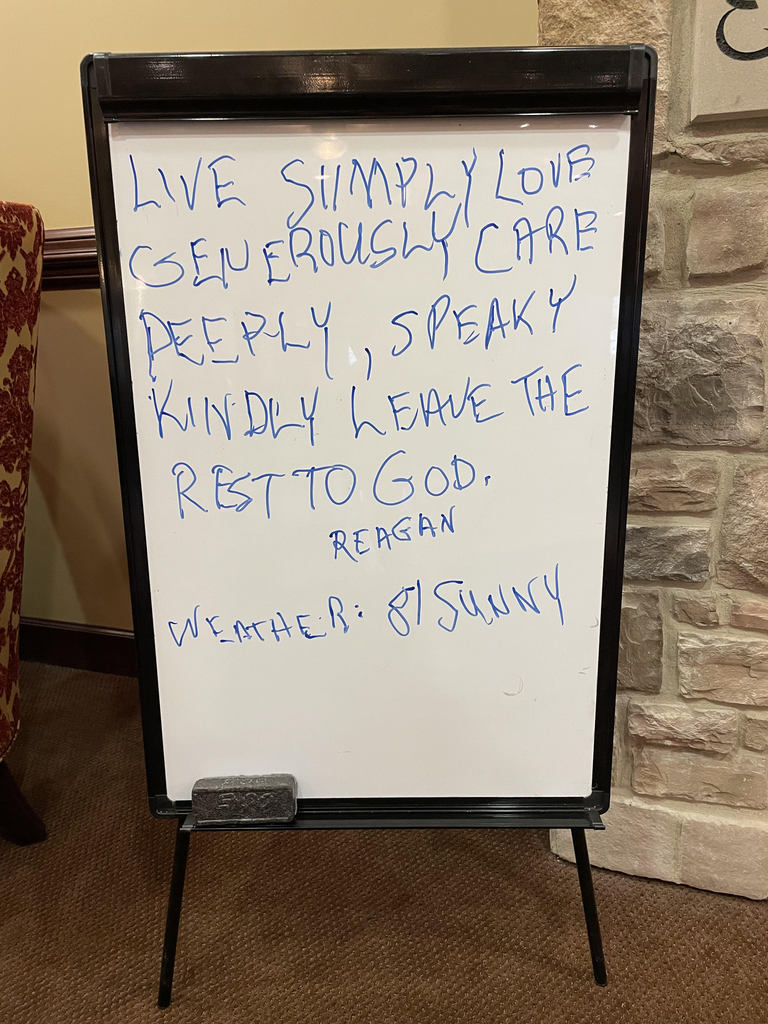 LIVE SIIMPLY LOVE
GENEROUSLY CARE
DEEPLY, SPEAKY
KINDLY LEAVE THE
REST TO GOD.
REAGAN
WEATHER: 81 SUNNY